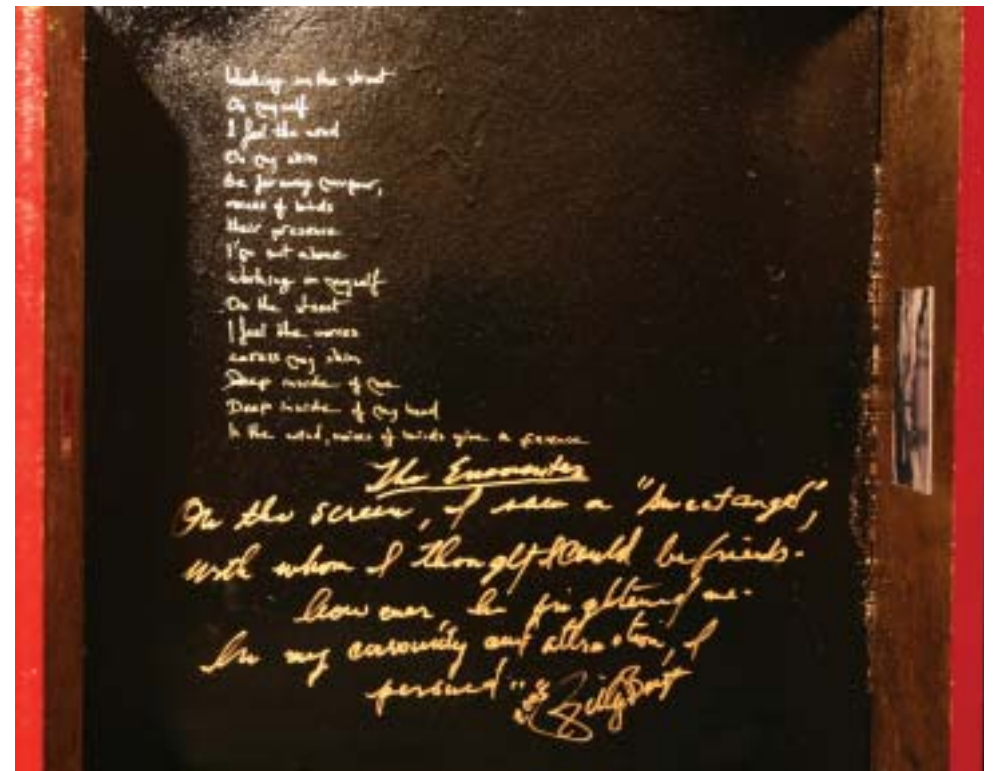 Walking in the street
On myself
I feel the wind
On my skin
the faraway
noises of birds
their presence
I'm out alone
walking on myself
On the street
I feel the noises
caress my skin
Deep inside of me
Deep inside of my head
In the wind, noises of birds give a presence
The Encounter
On the screen, I saw a "sweet angel",
with whom I thought I could be friends.
however, he frightened me.
In my curiosity and attraction, I
persued"
Billy